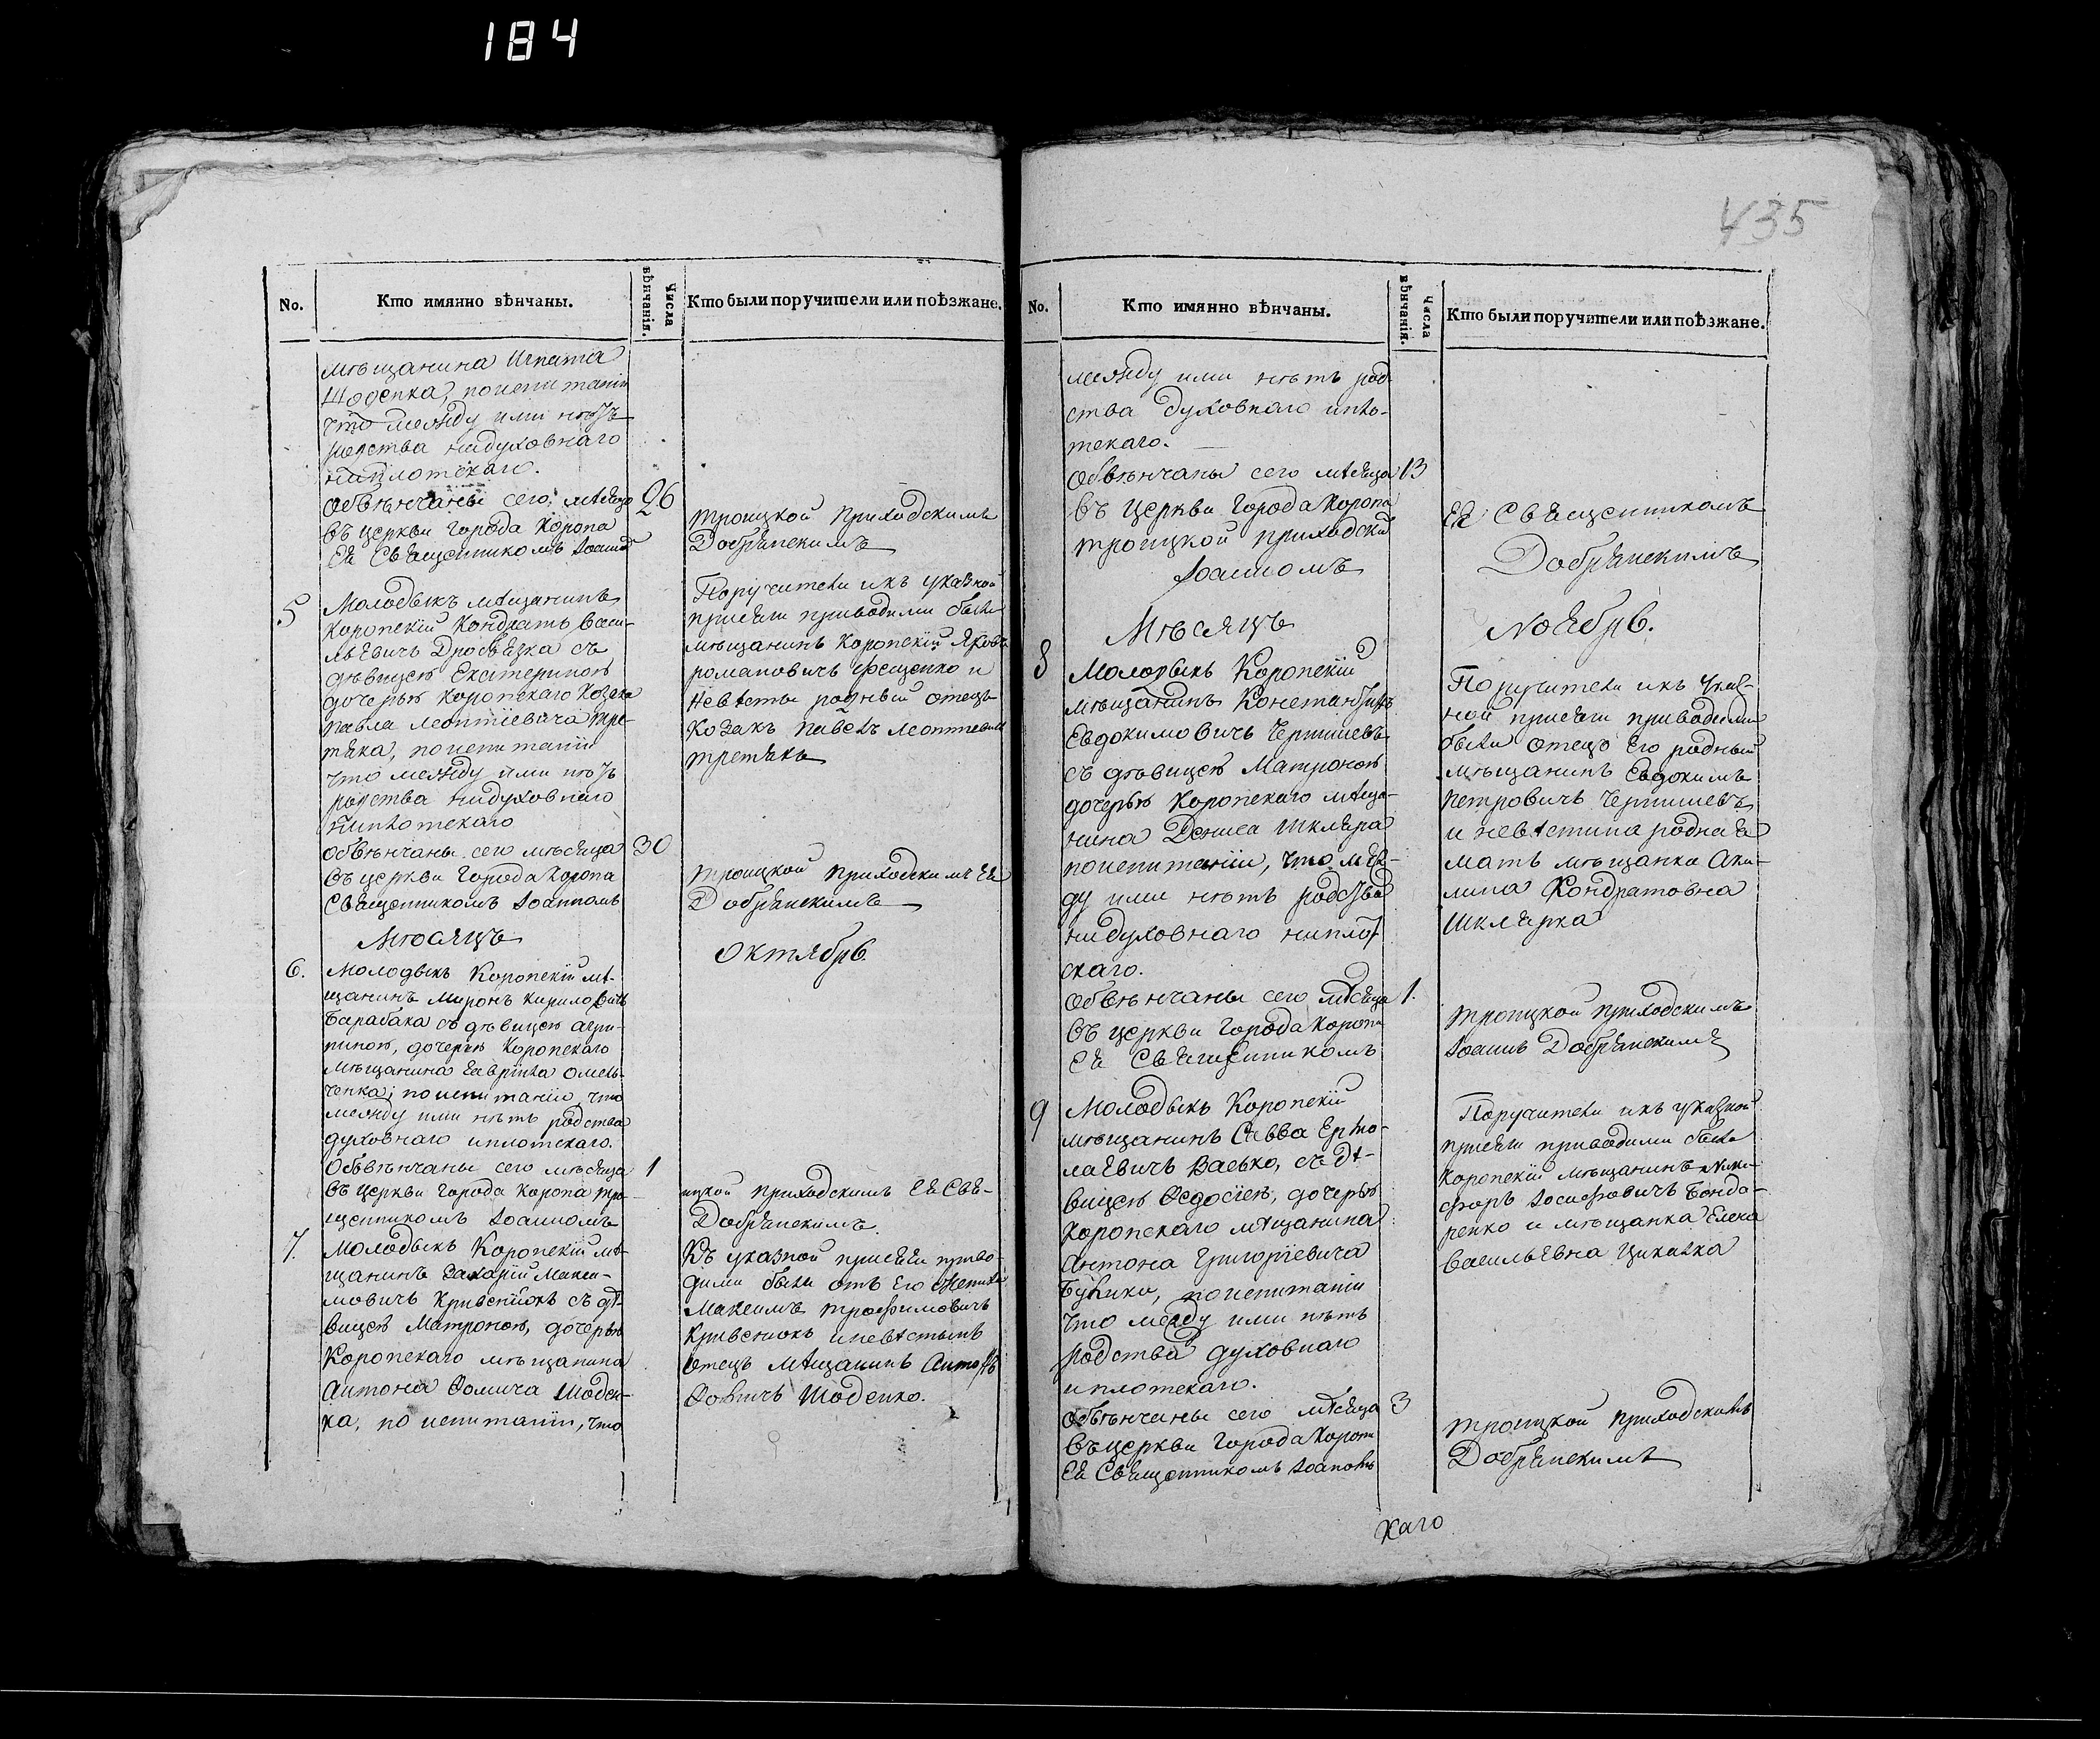 184
435
No.
Кто имянно вѣнчаны.
Числа вѣнчанія.
Кто были поручители или поѣзжане.
мѣщанина Игнатія
Шоденка, поиспитаніи
что между ими нѣтъ
родства нидуховнаго
ниплотскаго.
Обвѣнчаны сего мѣсяца 26
въ церкви города Коропа троицкой приходскимъ
ея Священникомъ Іоанномъ Добрянскимъ
5 Молодыкъ мѣщанинъ
Коропскій Кондратъ Васи-
льевичъ Дробязка съ
дѣвицею Екатериною
дочерью Коропскаго Козака
Павла Леонтіевича Тре-
тяка, поиспитаніи
что между ими нѣтъ
родства нидуховнаго
ниплотскаго
Поручители ихъ указной
присяги приводими были
мѣщанинъ Коропскій Яковъ
Романовичъ Фещенко и
невѣсты родный отецъ
Козакъ Павелъ Леонтіевичъ
Третякъ
Обвѣнчаны сего мѣсяца 30
въ церкви города Коропа троицкой приходскимъ ея
Священникомъ Іоанномъ Добрянскимъ
Мѣсяцъ Октябрь.
6. Молодыкъ Коропскій мѣ-
щанинъ Миронъ Кириловичъ
Барабаха съ дѣвицею Агри-
пиною, дочерью Коропскаго
мѣщанина Гавріила Омель-
ченка, поиспитаніи, что
между ими нѣтъ родства
духовнаго иплотскаго.
Обвѣнчаны сего мѣсяца 1
въ церкви города Коропа трои- ицкой приходскимъ ея Свя-
щенникомъ Іоанномъ Добрянскимъ
7. Молодыкъ Коропскій мѣ-
щанинъ Захарій Макси-
мовичъ Кривенюкъ съ дѣ-
вицею Матроною, дочерью
Коропскаго мѣщанина
Антона Фомича Шоден-
ка, по испитаніи, что
Къ указной присяги приво-
дими были отъ его жениха
Максимъ Трофимовичъ
Кривенюкъ иневѣстынъ
отецъ мѣщанинъ Антонъ
Фомичъ Шоденко.
No.
Кто имянно вѣнчаны.
Числа вѣнчанія.
Кто были поручители или поѣзжане.
между ими нѣтъ род-
ства духовнаго ипло-
тскаго.
Обвѣнчаны сего мѣсяца 13
въ церкви города Коропа ея Священникомъ
троицкой приходскимъ
Іоанномъ Добрянскимъ
Мѣсяцъ Ноябрь.
8 Молодыкъ Коропскій
мѣщанинъ Константинъ
Евдокимовичъ Чернишевъ
съ дѣвицею Матроною
дочерью Коропскаго мѣща-
нина Дениса Шкляра
поиспитаніи, что меж-
ду ими нѣтъ родства
нидуховнаго ниплот-
скаго.
Поручители ихъ указ-
ной присяги приводими
были отецъ его родный
мѣщанинъ Евдокимъ
Петровичъ Чернишевъ
и невѣстина родная
мать мѣщанка Аки-
лина Кондратовна
Шклярка
Обвѣнчаны сего мѣсяца 1.
въ церкви города Коропа троицкой приходскимъ
ея Священникомъ Іоанномъ Добрянскимъ
9 Молодыкъ Коропскій
мѣщанинъ Савва Ермо-
лаевичъ Васько, съ дѣ-
вицею Федосіею, дочерью
Коропскаго мѣщанина
Антона Григоріевича
поиспитаніи
что между ими нѣтъ
родства духовнаго
иплотскаго.
Поручители ихъ указной
присяги приводими были
Коропскій мѣщанинъ Ники-
форъ Іосифовичъ Бонда-
ренко и мѣщанка Елена
Васильевна
Обвѣнчаны сего мѣсяца 3
въ церкви города Коропа троицкой приходскимъ
ея Священникомъ Іоаномъ Добрянскимъ
каго